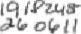 1918248
260611